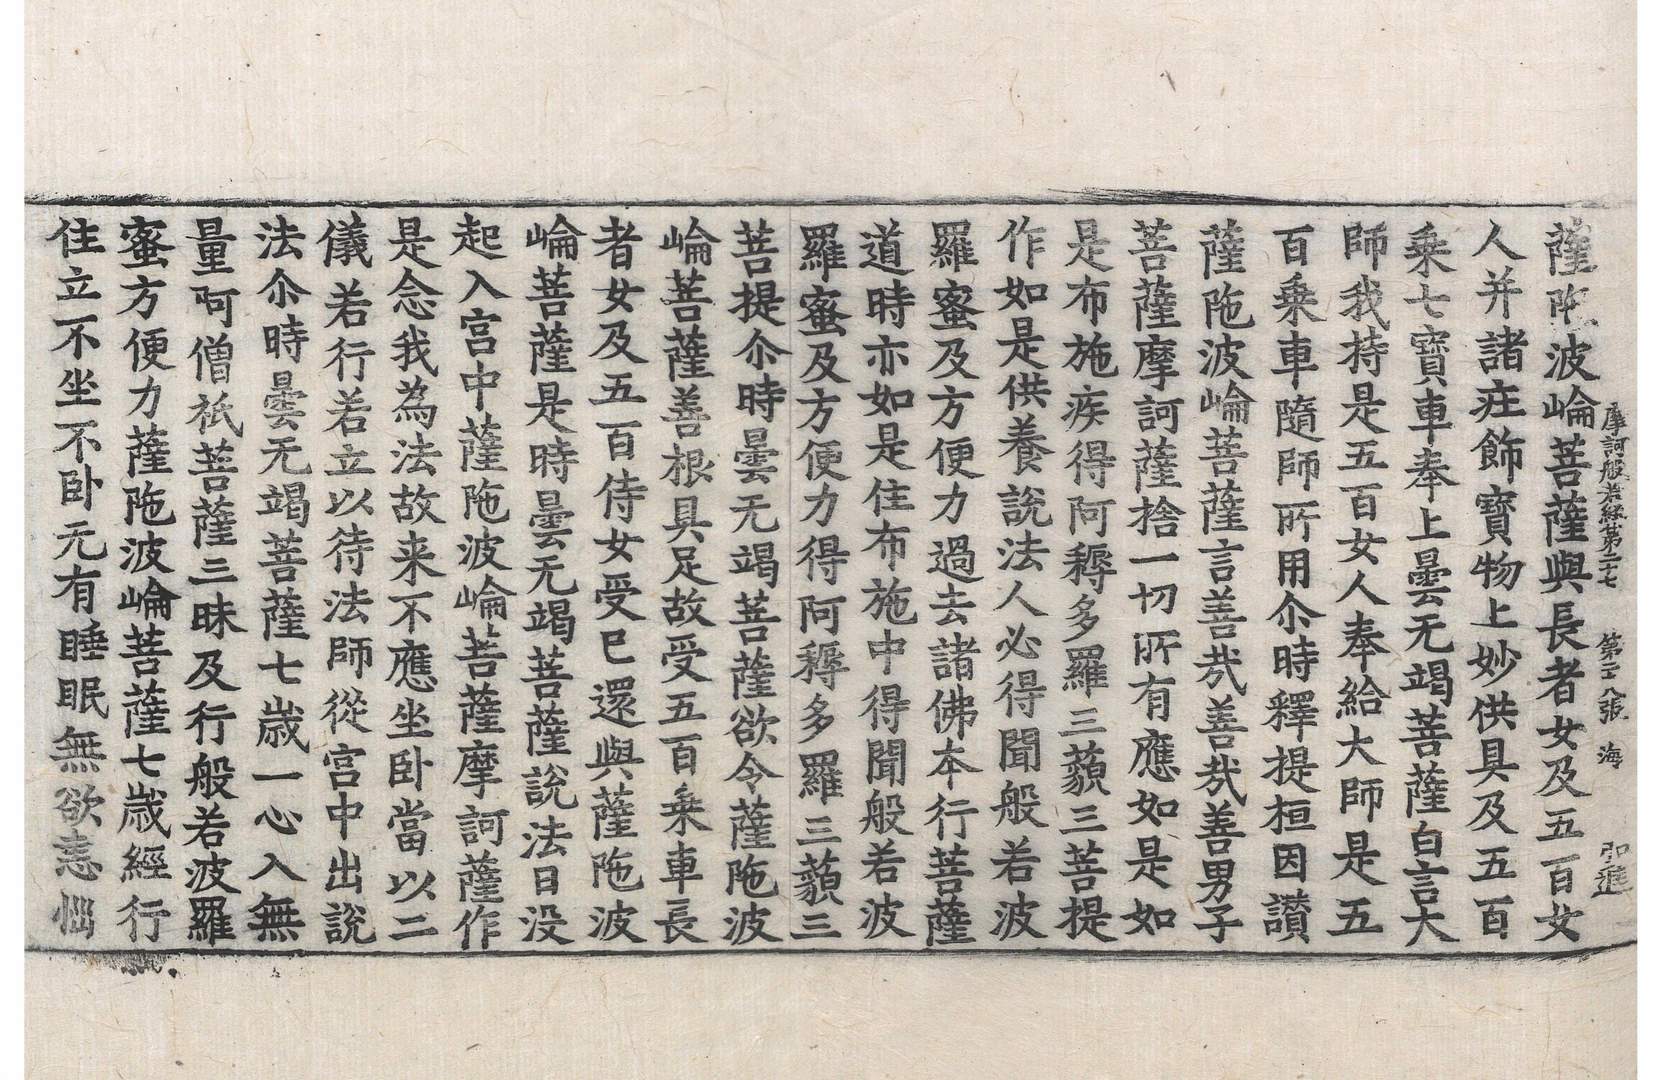 摩訶般若經第二十七 第二八張 海
薩陁波崘菩薩與長者女及五百女
人并諸㽵飾寶物上妙供具及五百
乗七寶車奉上曇无竭菩薩白言大
師我持是五百女人奉給大師是五
百乗車隨師所用尒時釋提桓因讃
薩陁波崘菩薩言善㢤善㢤善男子
菩薩摩訶薩捨一切所有應如是如
是布施疾得阿耨多羅三藐三菩提
作如是供養說法人必得聞般若波
羅蜜及方便力過去諸佛本行菩薩
道時亦如是住布施中得聞般若波
羅蜜及方便力得阿耨多羅三藐三
菩提尒時曇无竭菩薩欲令薩陁波
崘菩薩善根具足故受五百乗車長
者女及五百侍女受已還與薩陁波
崘菩薩是時曇无竭菩薩說法日没
起入宫中薩陁波崘菩薩摩訶薩作
是念我為法故来不應坐卧當以二
儀若行若立以待法師從宫中出說
法尒時曇无竭菩薩七歳一心入無
量阿僧祇菩薩三昧及行般若波羅
蜜方便力薩陁波崘菩薩七歳經行
住立不坐不卧无有睡眠無欲恚惱